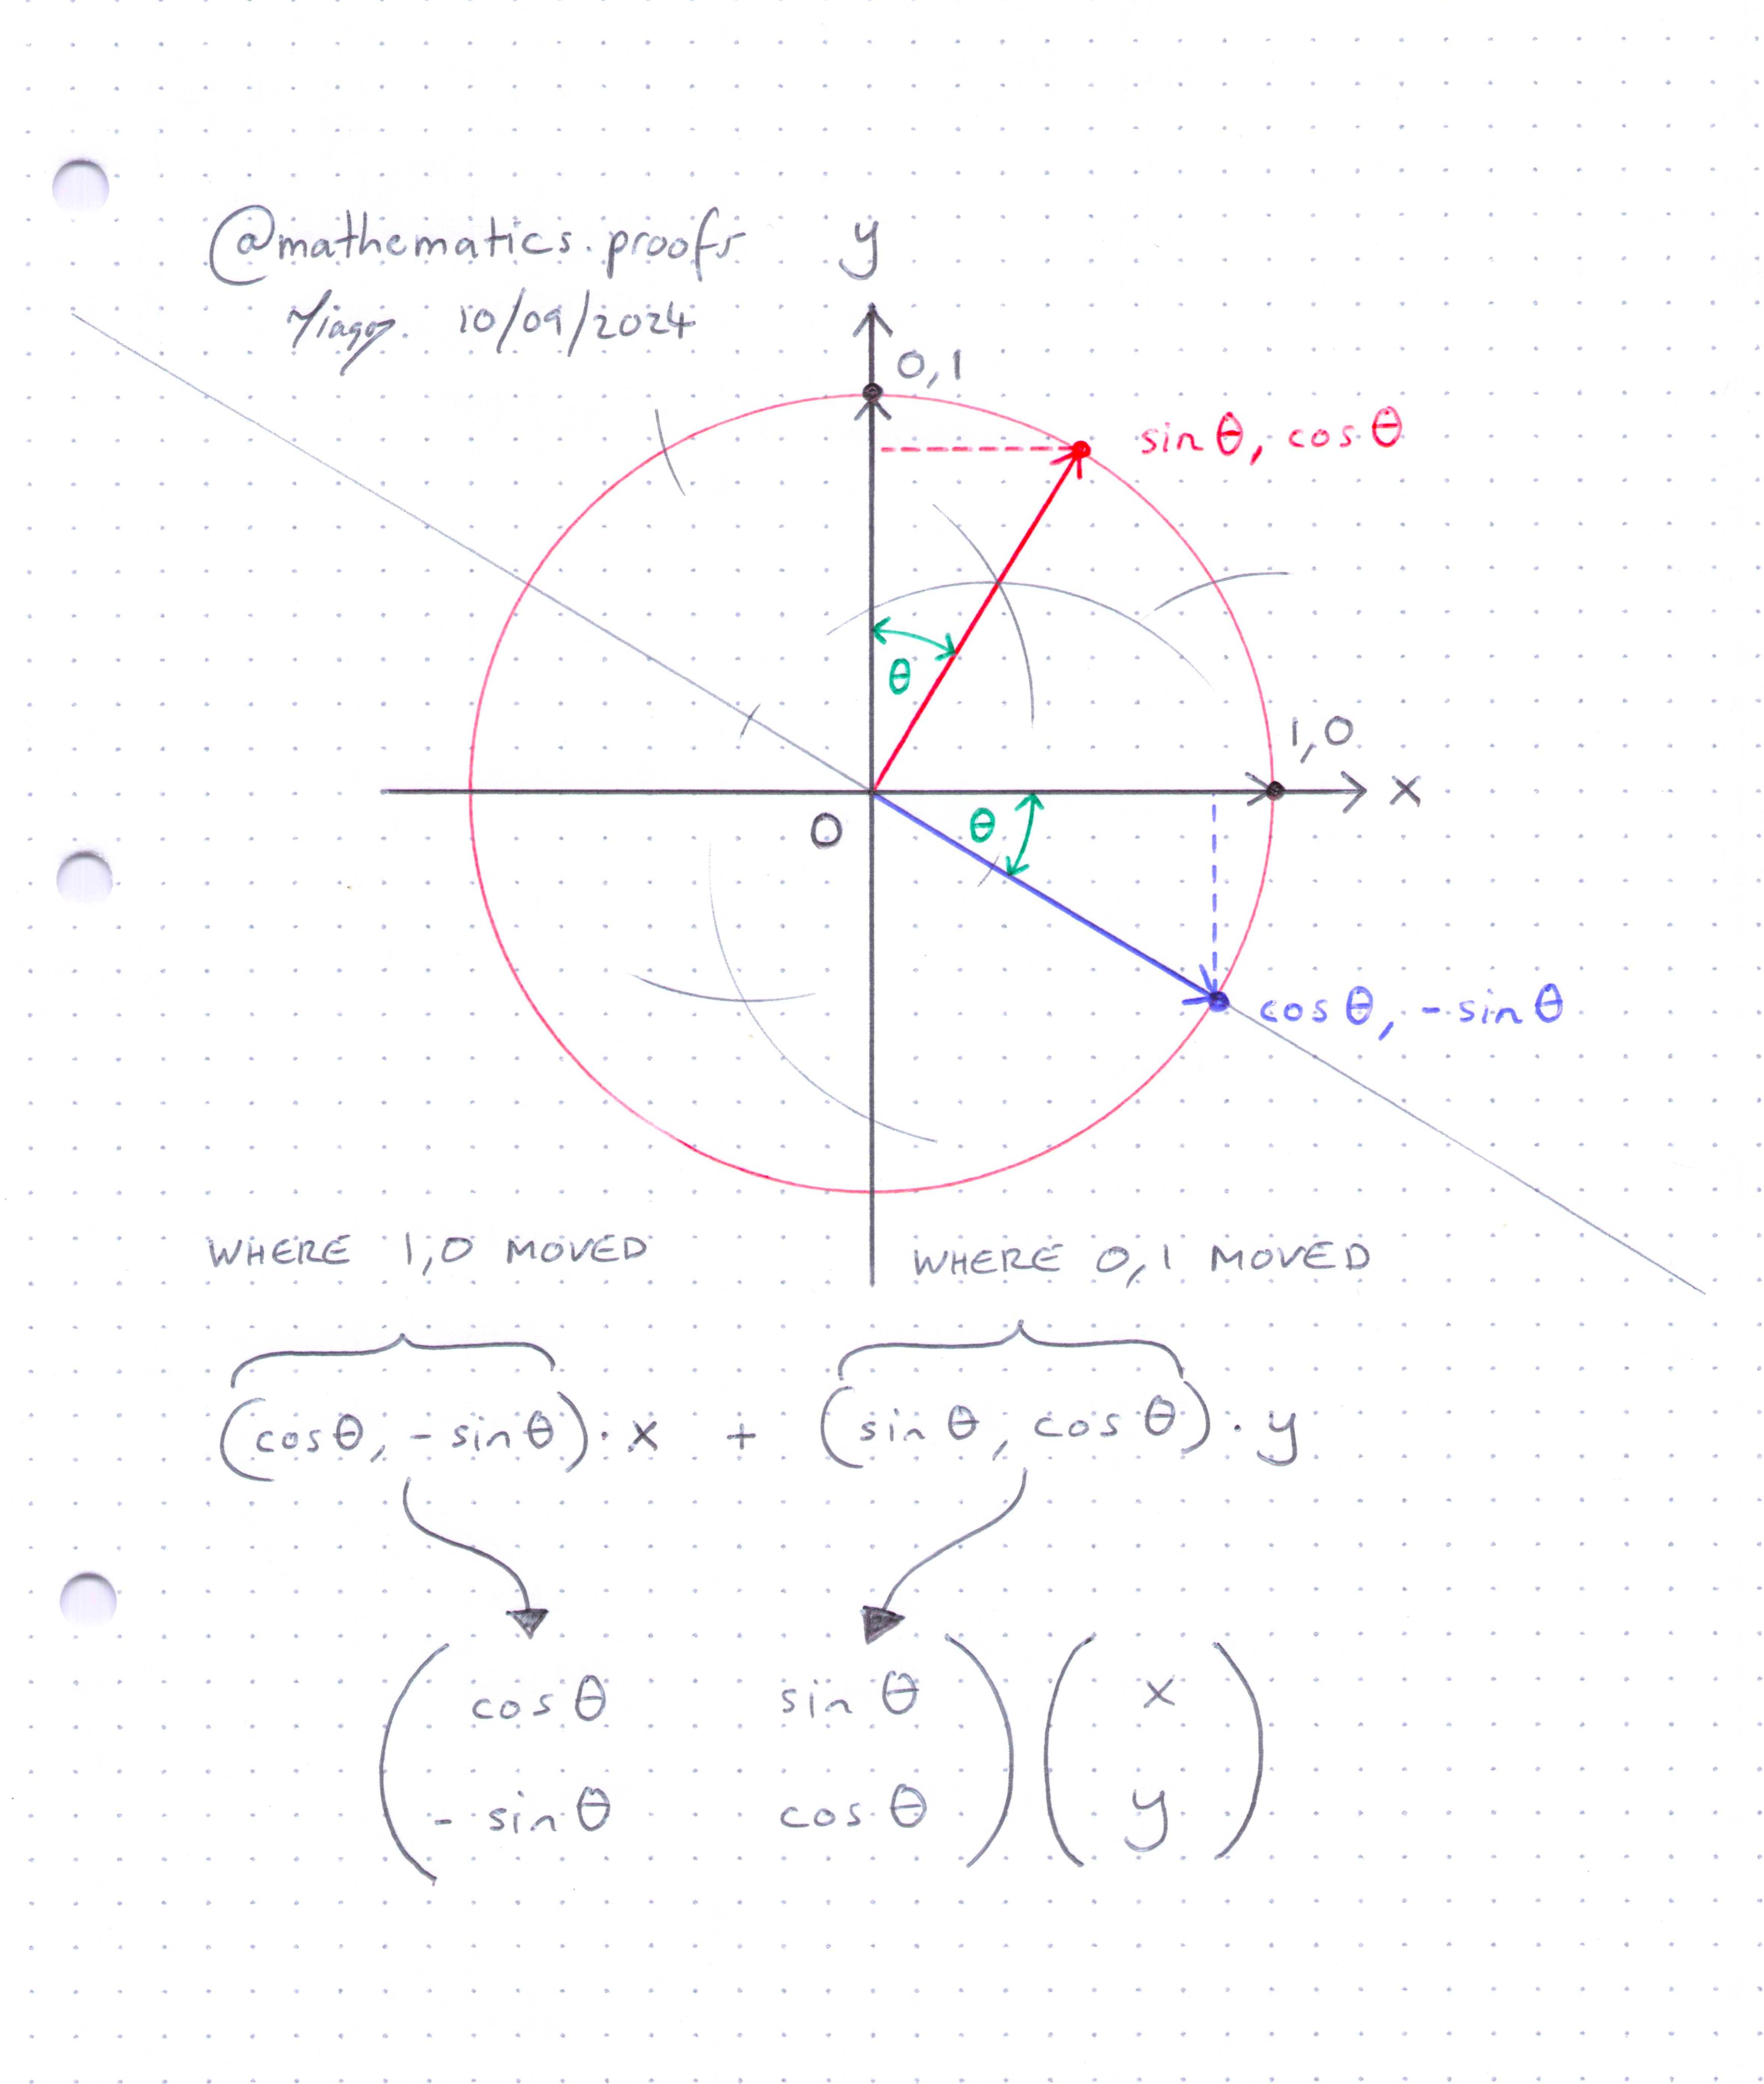 @mathematics.proofs
10/09/2024
y
0,1
sin θ, cos θ
θ
1,0
x
O
θ
cos θ, - sin θ
WHERE 1,0 MOVED
WHERE 0,1 MOVED
(cosθ, - sinθ) · x + (sin θ, cos θ) · y
( cos θ sin θ ) ( x )
( - sin θ cos θ ) ( y )